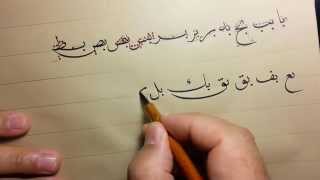 با بب بج بد بر بر بس بص بط
بع بف بق بق بك بل